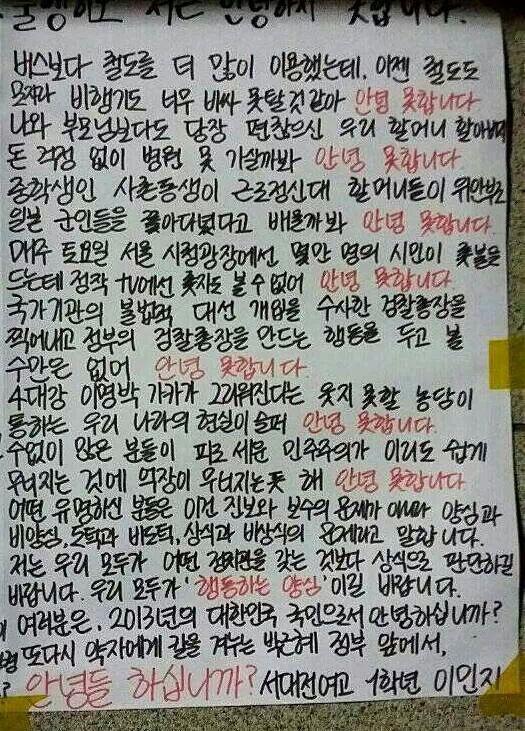 저는 안녕하지 못합니다.
버스보다 철도를 더 많이 이용했는데, 이젠 철도도
모자라 비행기도 너무 비싸 못탈것 같아 안녕 못합니다
나와 부모님보다도 당장 편찮으신 우리 할머니 할아버지
돈 걱정 없이 병원 못 가실까봐 안녕 못합니다
중학생인 사촌동생이 근로정신대 할머니들이 위안부로
일본 군인들을 쫓아다녔다고 배울까봐 안녕 못합니다.
매주 토요일 서울 시청광장에선 몇만 명의 시민이 촛불을
드는데 정작 tv에선 촛자도 볼 수 없어 안녕 못합니다
국가기관의 불법적 대선 개입을 수사한 검찰총장을
찍어내고 정부의 검찰총장을 만드는 행동을 두고 볼
수만은 없어 안녕 못합니다.
4대강 이명박 가카가 그리워진다는 웃지 못할 농담이
통하는 우리 나라의 현실이 슬퍼 안녕 못합니다.
수없이 많은 분들이 피로 세운 민주주의가 이리도 쉽게
무너지는 것에 억장이 무너지는 듯 해 안녕 못합니다
어떤 유명하신 분들은 이건 진보와 보수의 문제가 아니라 양심과
비양심, 도덕과 비도덕, 상식과 비상식의 문제라고 말합니다.
저는 우리 모두가 어떤 정치관을 갖는 것보다 상식으로 판단하길
바랍니다. 우리 모두가 '행동하는 양심'이길 바랍니다.
여러분은, 2013년의 대한민국 국민으로서 안녕하십니까?
또다시 약자에게 칼을 겨누는 박근혜 정부 앞에서,
안녕들 하십니까? 서대전여고 1학년 이민지